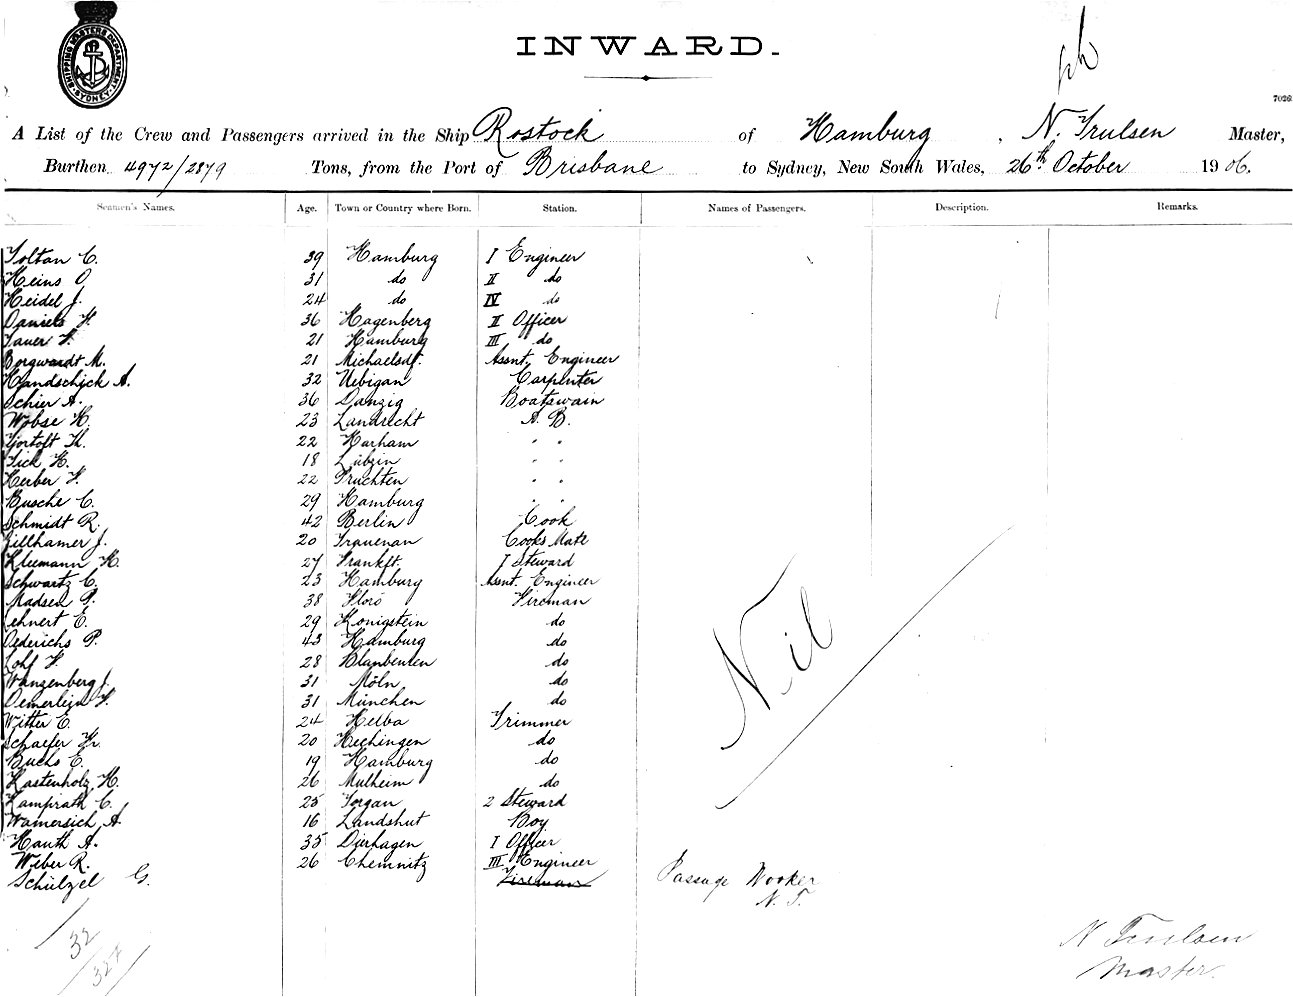 SHIPPING MASTERS DEPARTMENT SYDNEY
INWARD.
7026
A List of the Crew and Passengers arrived in the Ship Rostock of Hamburg, N. Trulsen Master,
Burthen 4972/2879 Tons, from the Port of Brisbane to Sydney, New South Wales, 26th October 1906.
Seamen's Names. Age. Town or Country where Born. Station. Names of Passengers. Description. Remarks.
Soltan C. 39 Hamburg I Engineer
Heins O 31 do II do
Heidel J. 24 do IV do
Daniels H. 36 Hagenberg II Officer
Sauer F. 21 Hamburg III do
Borgwardt M. 21 Michaelsdf. Assnt. Engineer
Handschick A. 32 Uebigan Carpenter
Schier A. 36 Danzig Boatswain
Wobse H. 23 Landrecht A. B.
Gjortoft K. 22 Harham " "
Tick H. 18 Lübzin " "
Herber F. 22 Truchten " "
Busche C. 29 Hamburg " "
Schmidt R. 42 Berlin Cook
Zillhamer J. 20 Frauenan Cooks Mate
Kleemann H. 27 Frankft. I Steward
Schwartz C. 23 Hamburg Assnt. Engineer
Madsen P. 38 Floro Fireman
Lehnert E. 29 Konigstein do
Dederichs P. 43 Hamburg do
Lohf F. 28 Blanbeuren do
Wanzenberg J. 31 Möln do
Demerlein F. 31 München do
Witter C. 24 Helba Trimmer
Schaefer Fr. 20 Hechingen do
Buchs E. 19 Hamburg do
Kastenholz H. 26 Mulheim do
Kamprath C. 25 Torgan 2 Steward
Wamersich A. 16 Landshut Boy
Hauth A. 35 Dierhagen I Officer
Weber R. 26 Chemnitz III Engineer
Schülzel G. Fireman Passage Worker
N. T.
Nil
32
N Trulsen
Master.